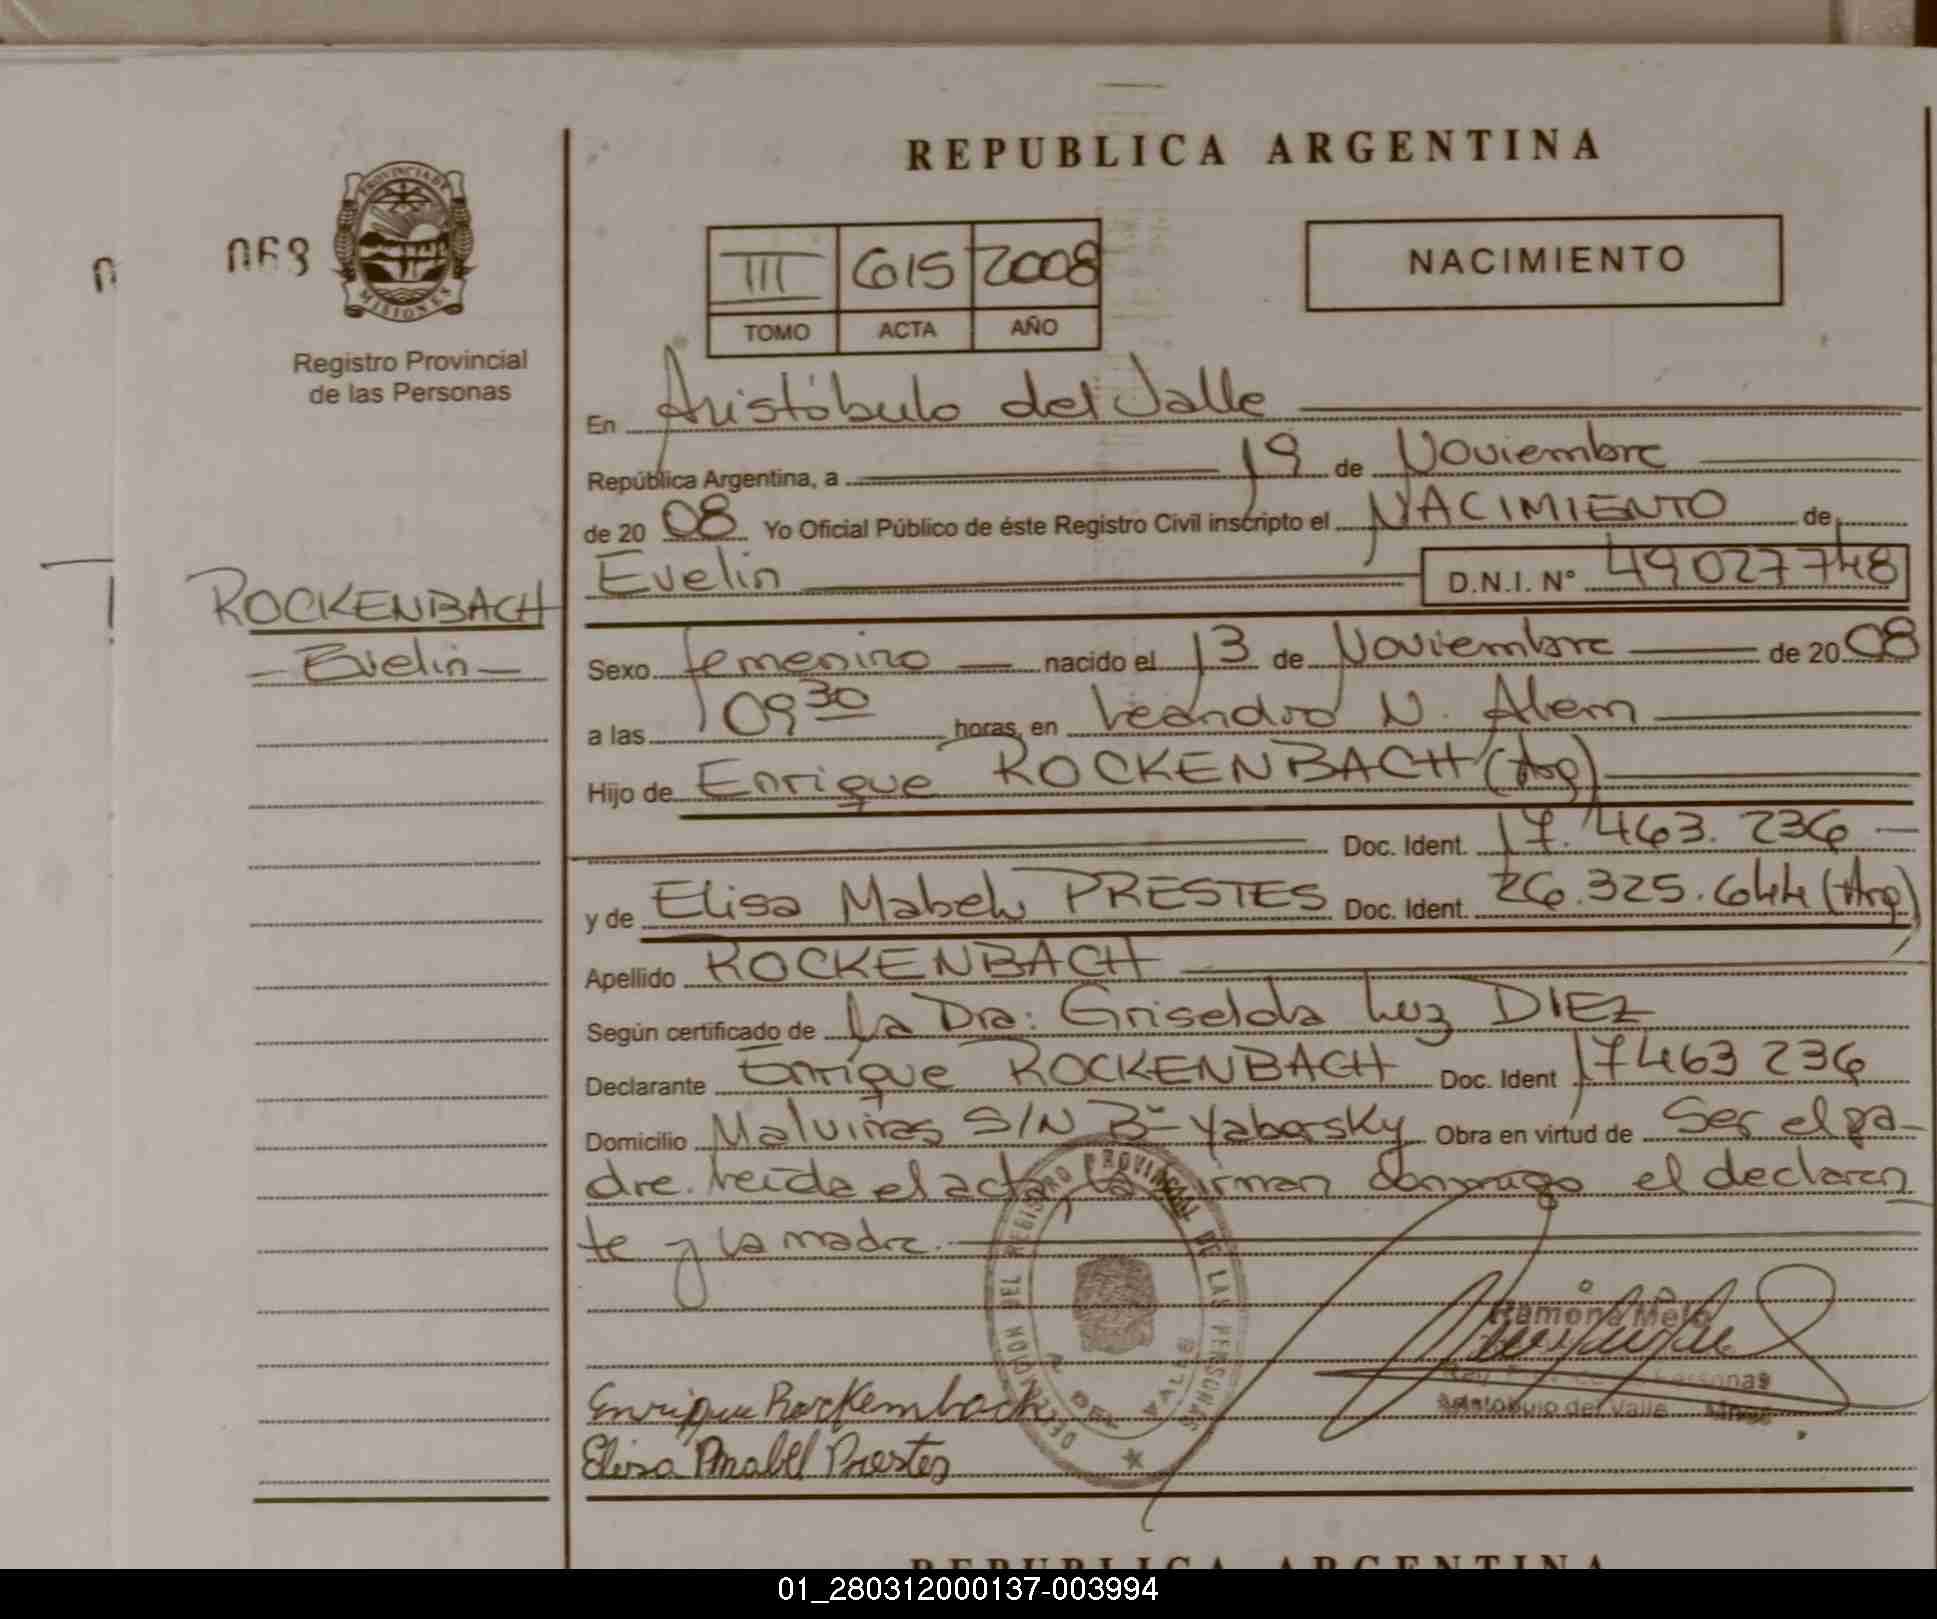 REPUBLICA ARGENTINA
068
PROVINCIA DE
MISIONES
Registro Provincial
de las Personas
III 615 2008
TOMO ACTA AÑO
NACIMIENTO
En Aristóbulo del Valle
República Argentina, a 19 de Noviembre
de 2008 Yo Oficial Público de éste Registro Civil inscripto el NACIMIENTO de
Evelin D.N.I. N° 49027748
ROCKENBACH
- Evelin -
Sexo femenino nacido el 13 de Noviembre de 2008
a las 09 30 horas, en Leandro N. Alem
Hijo de Enrique ROCKENBACH (Arg)
Doc. Ident. 17.463.236
y de Elisa Mabel PRESTES Doc. Ident. 26.325.644 (Arg)
Apellido ROCKENBACH
Según certificado de La Dra: Griselda Luz DIEZ
Declarante Enrique ROCKENBACH Doc. Ident 17463 236
Domicilio Malvinas S/N B= Yaborsky Obra en virtud de Ser el pa-
dre. Leída el acta, la firman conmigo el declaran
te y la madre.
DELEGACION DEL REGISTRO PROVINCIAL DE LAS PERSONAS
A. DEL VALLE
Ramona Melo
Reg. Personas
Aristobulo del Valle Mnes
Enrique Rockembach
Elisa Mabel Prestes
REPUBLICA ARGENTINA
01_280312000137-003994